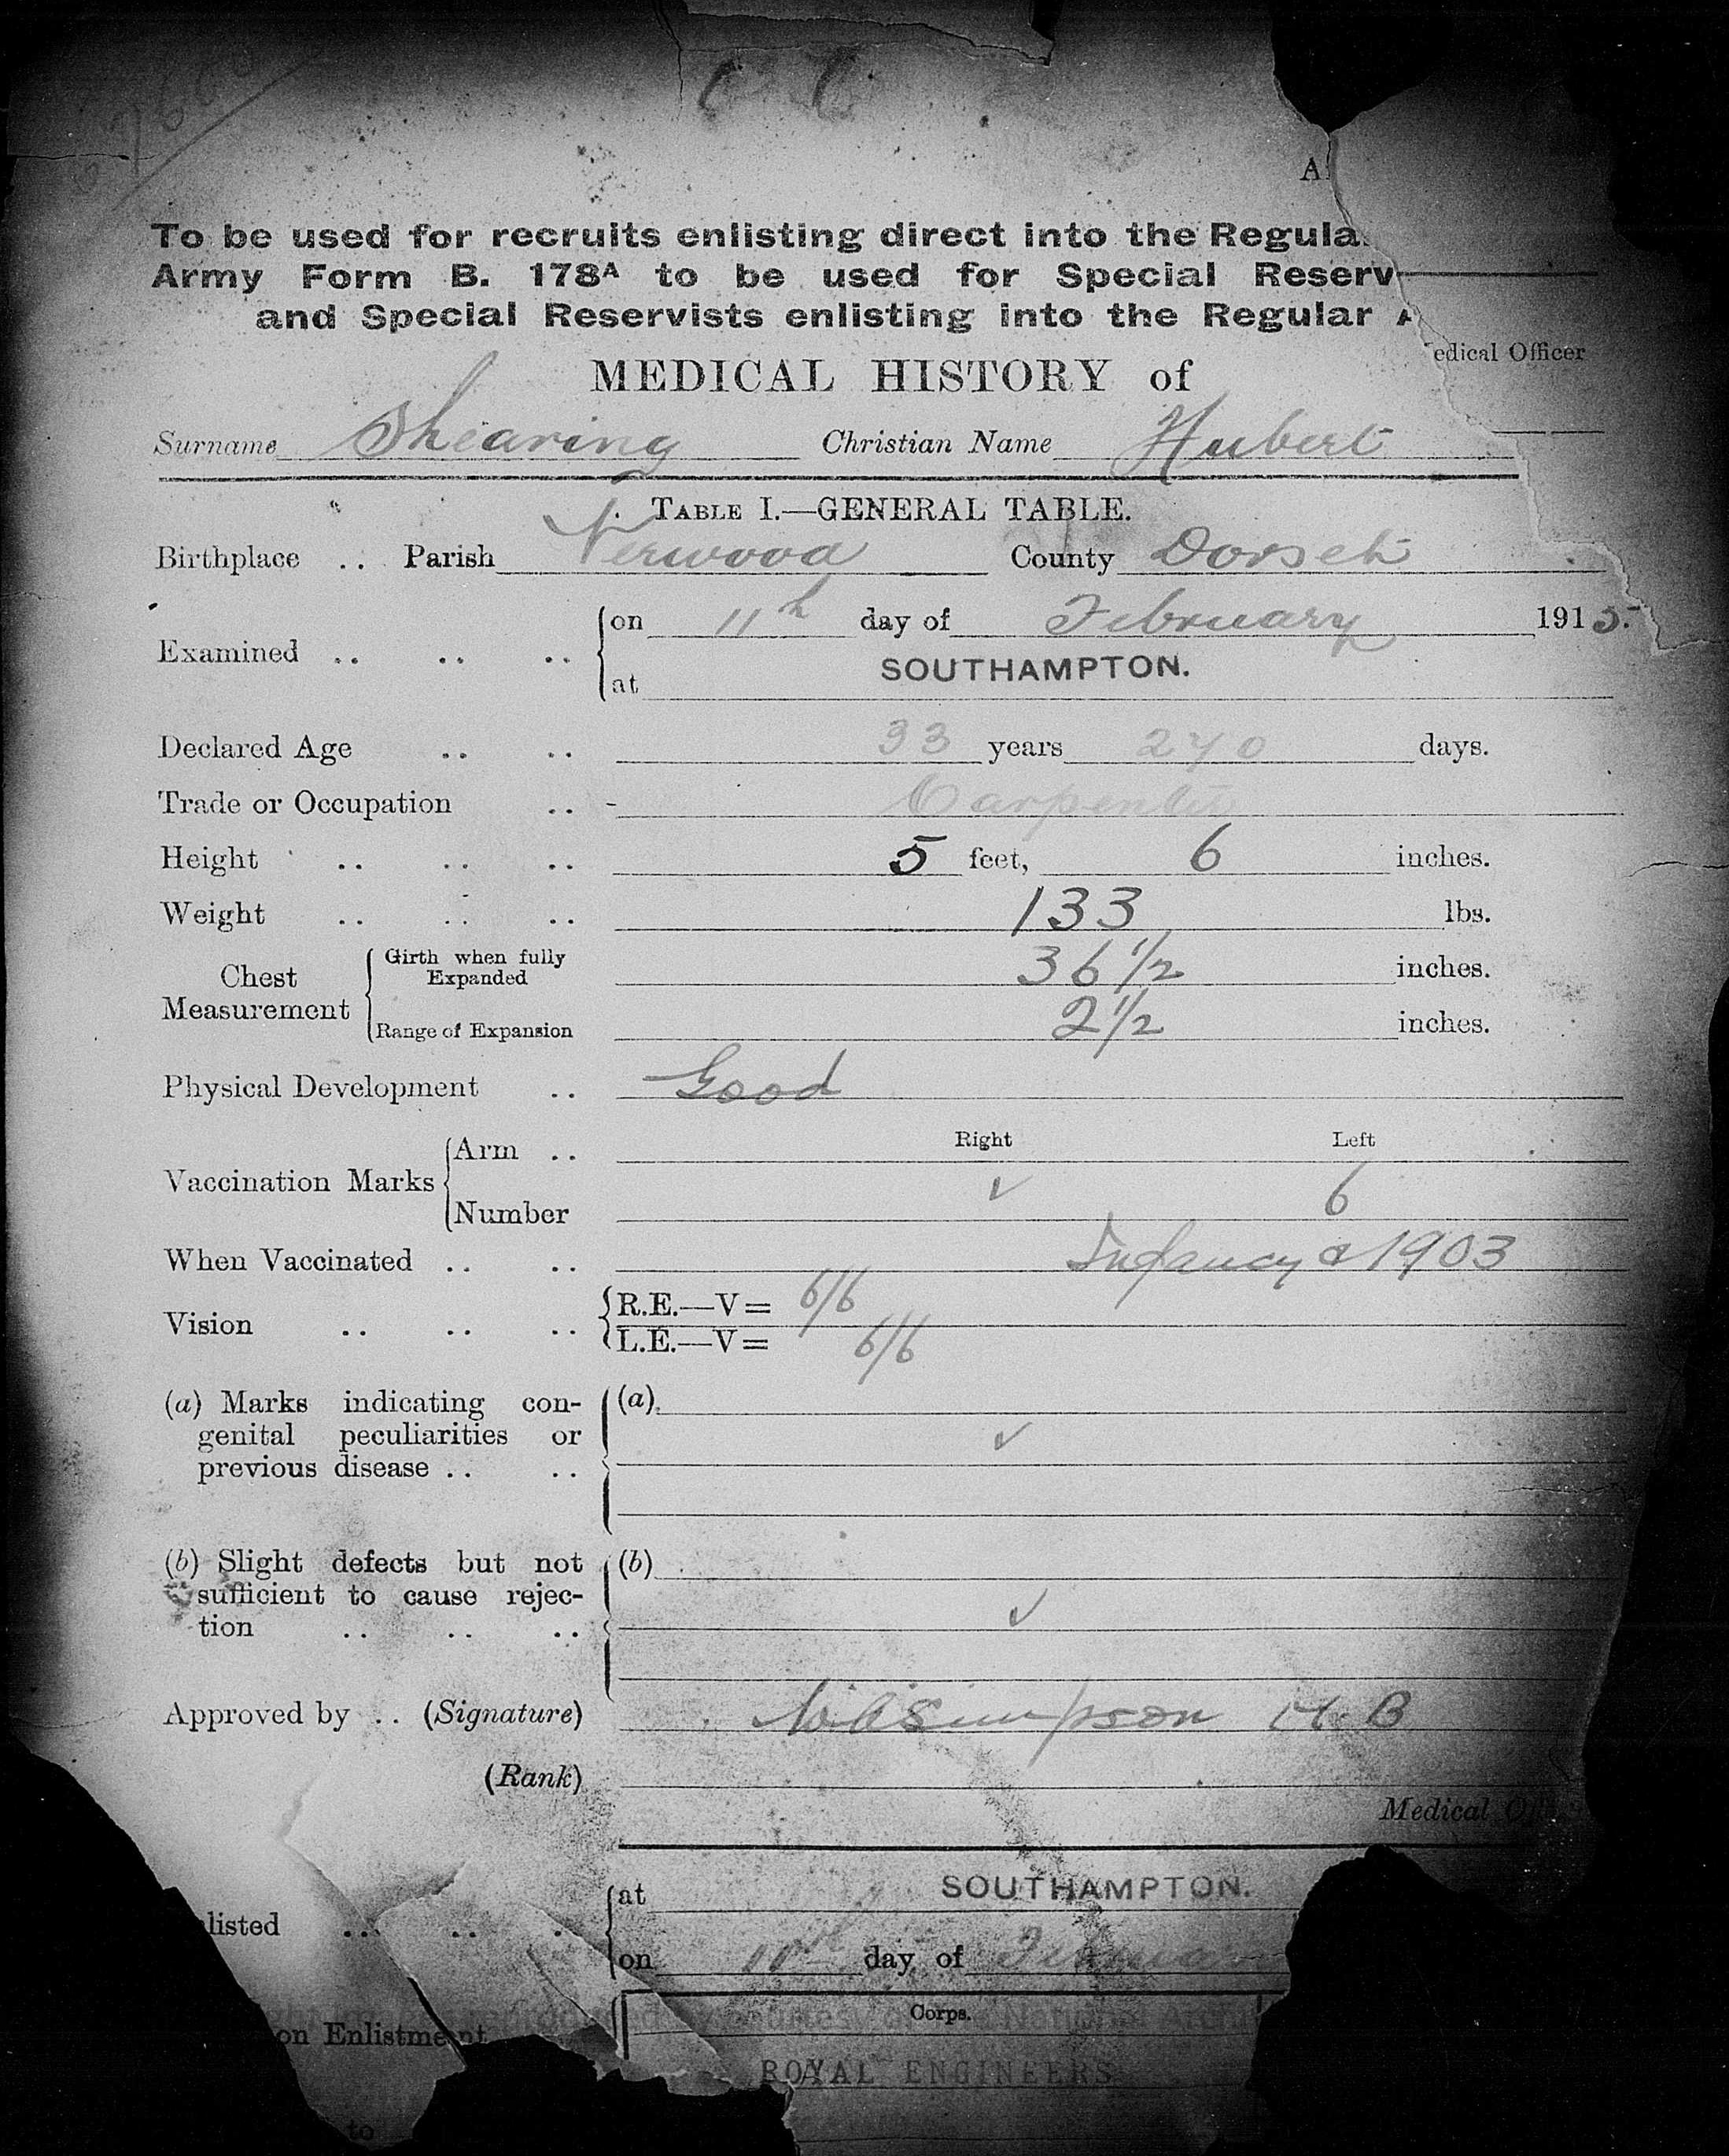 A
To be used for recruits enlisting direct into the Regula
Army Form B. 178A to be used for Special Reserv
and Special Reservists enlisting into the Regular A
edical Officer
MEDICAL HISTORY of
Surname Shearing Christian Name Hubert
TABLE I.—GENERAL TABLE.
Birthplace .. Parish Verwood County Dorset
Examined .. .. .. on 11th day of February 1915.
at SOUTHAMPTON.
Declared Age .. .. 33 years 240 days.
Trade or Occupation .. Carpenter
Height .. .. .. 5 feet, 6 inches.
Weight .. .. .. 133 lbs.
Chest Measurement
Girth when fully Expanded 36 1/2 inches.
Range of Expansion 2 1/2 inches.
Physical Development .. Good
Right Left
Vaccination Marks Arm ..
Number ✓ 6
When Vaccinated .. .. Infancy & 1903
Vision .. .. .. R.E.—V= 6/6
L.E.—V= 6/6
(a) Marks indicating con- (a)
genital peculiarities or ✓
previous disease .. ..
(b) Slight defects but not (b)
sufficient to cause rejec- ✓
tion .. .. ..
Approved by .. (Signature) Simpson M.B
(Rank)
Medical O
listed .. .. . at SOUTHAMPTON.
on day of Februar
Corps.
on Enlistment
ROYAL ENGINEERS
to